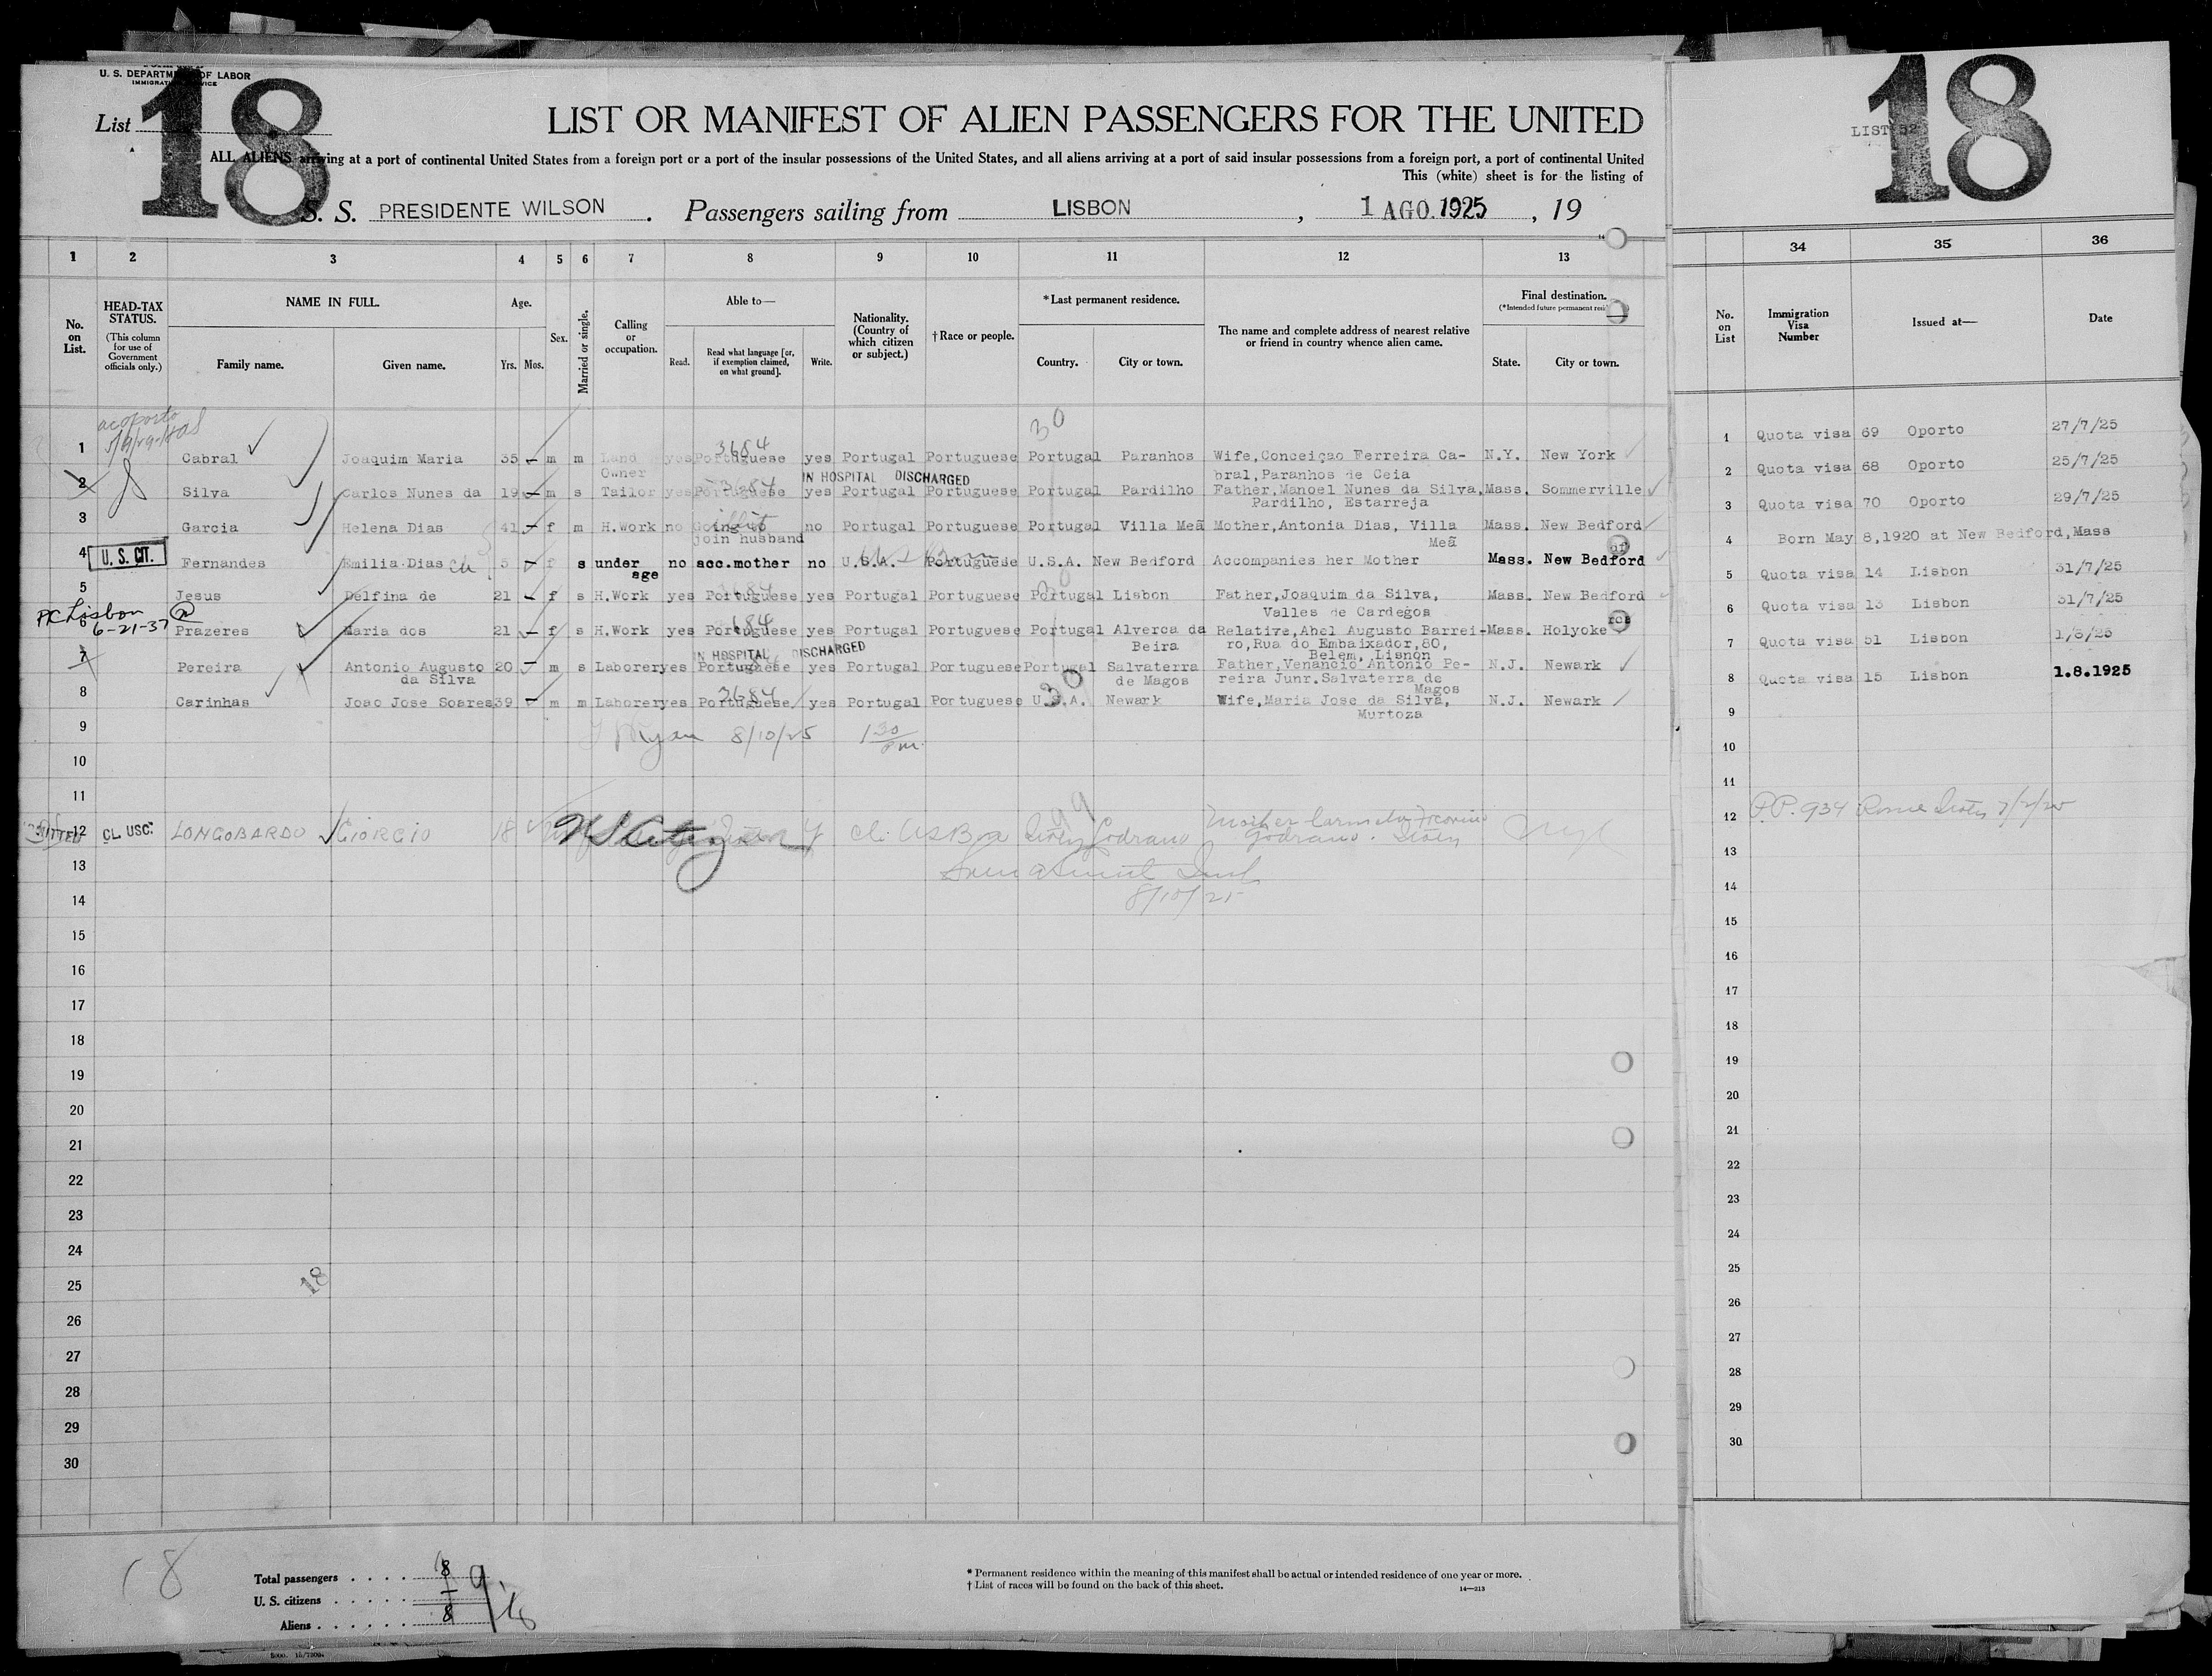 U. S. DEPARTMENT OF LABOR
IMMIGRATION SERVICE
18
List
LIST OR MANIFEST OF ALIEN PASSENGERS FOR THE UNITED
ALL ALIENS arriving at a port of continental United States from a foreign port or a port of the insular possessions of the United States, and all aliens arriving at a port of said insular possessions from a foreign port, a port of continental United
This (white) sheet is for the listing of
S. S. PRESIDENTE WILSON. Passengers sailing from LISBON, 1 AGO. 1925, 19
1 2 3 4 5 6 7 8 9 10 11 12 13
No. on List.
HEAD-TAX STATUS.
(This column for use of Government officials only.)
NAME IN FULL.
Family name. Given name.
Age.
Yrs. Mos.
Sex.
Married or single.
Calling or occupation.
Able to—
Read. Read what language [or, if exemption claimed, on what ground]. Write.
Nationality. (Country of which citizen or subject.)
† Race or people.
*Last permanent residence.
Country. City or town.
The name and complete address of nearest relative or friend in country whence alien came.
Final destination.
State. City or town.
1 Cabral Joaquim Maria 35 m m Land Owner yes Portuguese yes Portugal Portuguese Portugal Paranhos Wife,Conceiçao Ferreira Ca- N.Y. New York
3684
30
bral,Paranhos de Ceia
IN HOSPITAL DISCHARGED
2 Silva Carlos Nunes da 19 m s Tailor yes Portuguese yes Portugal Portuguese Portugal Pardilho Father,Manoel Nunes da Silva, Mass. Sommerville
Pardilho, Estarreja
3 Garcia Helena Dias 41 f m H.Work no Going to no Portugal Portuguese Portugal Villa Meã Mother,Antonia Dias, Villa Mass. New Bedford
join husband
Meã
4 U. S. CIT. Fernandes Emilia Dias 5 f s under no acc.mother no U.S.A. Portuguese U.S.A. New Bedford Accompanies her Mother Mass. New Bedford
age
5 Jesus Delfina de 21 f s H.Work yes Portuguese yes Portugal Portuguese Portugal Lisbon Father,Joaquim da Silva, Mass. New Bedford
Valles de Cardegos
Lisbon
6-21-37
6 Prazeres Maria dos 21 f s H.Work yes Portuguese yes Portugal Portuguese Portugal Alverca da Relative,Abel Augusto Barrei- Mass. Holyoke
Beira ro,Rua do Embaixador,80,
Belem, Lisnon
IN HOSPITAL DISCHARGED
7 Pereira Antonio Augusto 20 m s Laborer yes Portuguese yes Portugal Portuguese Portugal Salvaterra Father,Venancio Antonio Pe- N.J. Newark
da Silva de Magos reira Junr.Salvaterra de
Magos
8 Carinhas Joao Jose Soares 39 m m Laborer yes Portuguese yes Portugal Portuguese U.S.A. Newark Wife,Maria Jose da Silva, N.J. Newark
3684
30
Murtoza
9
8/10/25 1 30 pm
10
11
12 CL. USC. LONGOBARDO GIORGIO 18 US Citizen
Godrano
99
13
8/10/25
14
15
16
17
18
19
20
21
22
23
24
25
18
26
27
28
29
30
18
Total passengers . . . . 8 9
U. S. citizens . . . . . —
Aliens . . . . . . 8
* Permanent residence within the meaning of this manifest shall be actual or intended residence of one year or more.
† List of races will be found on the back of this sheet.
14—213
18
LIST 52
34 35 36
No. on List
Immigration Visa Number
Issued at—
Date
1 Quota visa 69 Oporto 27/7/25
2 Quota visa 68 Oporto 25/7/25
3 Quota visa 70 Oporto 29/7/25
4 Born May 8,1920 at New Bedford,Mass
5 Quota visa 14 Lisbon 31/7/25
6 Quota visa 13 Lisbon 31/7/25
7 Quota visa 51 Lisbon 1/8/25
8 Quota visa 15 Lisbon 1.8.1925
9
10
11
12 P.P. 934 Rome
13
14
15
16
17
18
19
20
21
22
23
24
25
26
27
28
29
30